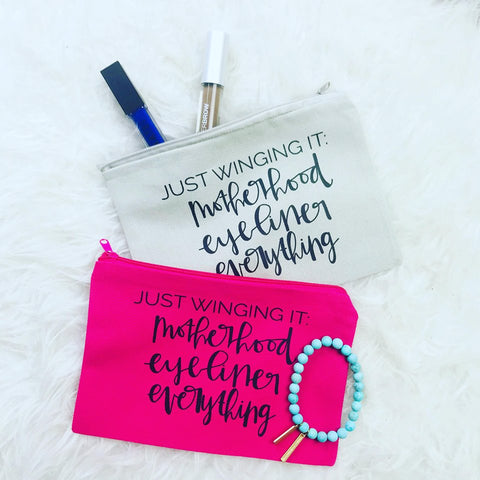 BROW
JUST WINGING IT:
Motherhood
eyeliner
everything
JUST WINGING IT:
Motherhood
eyeliner
everything